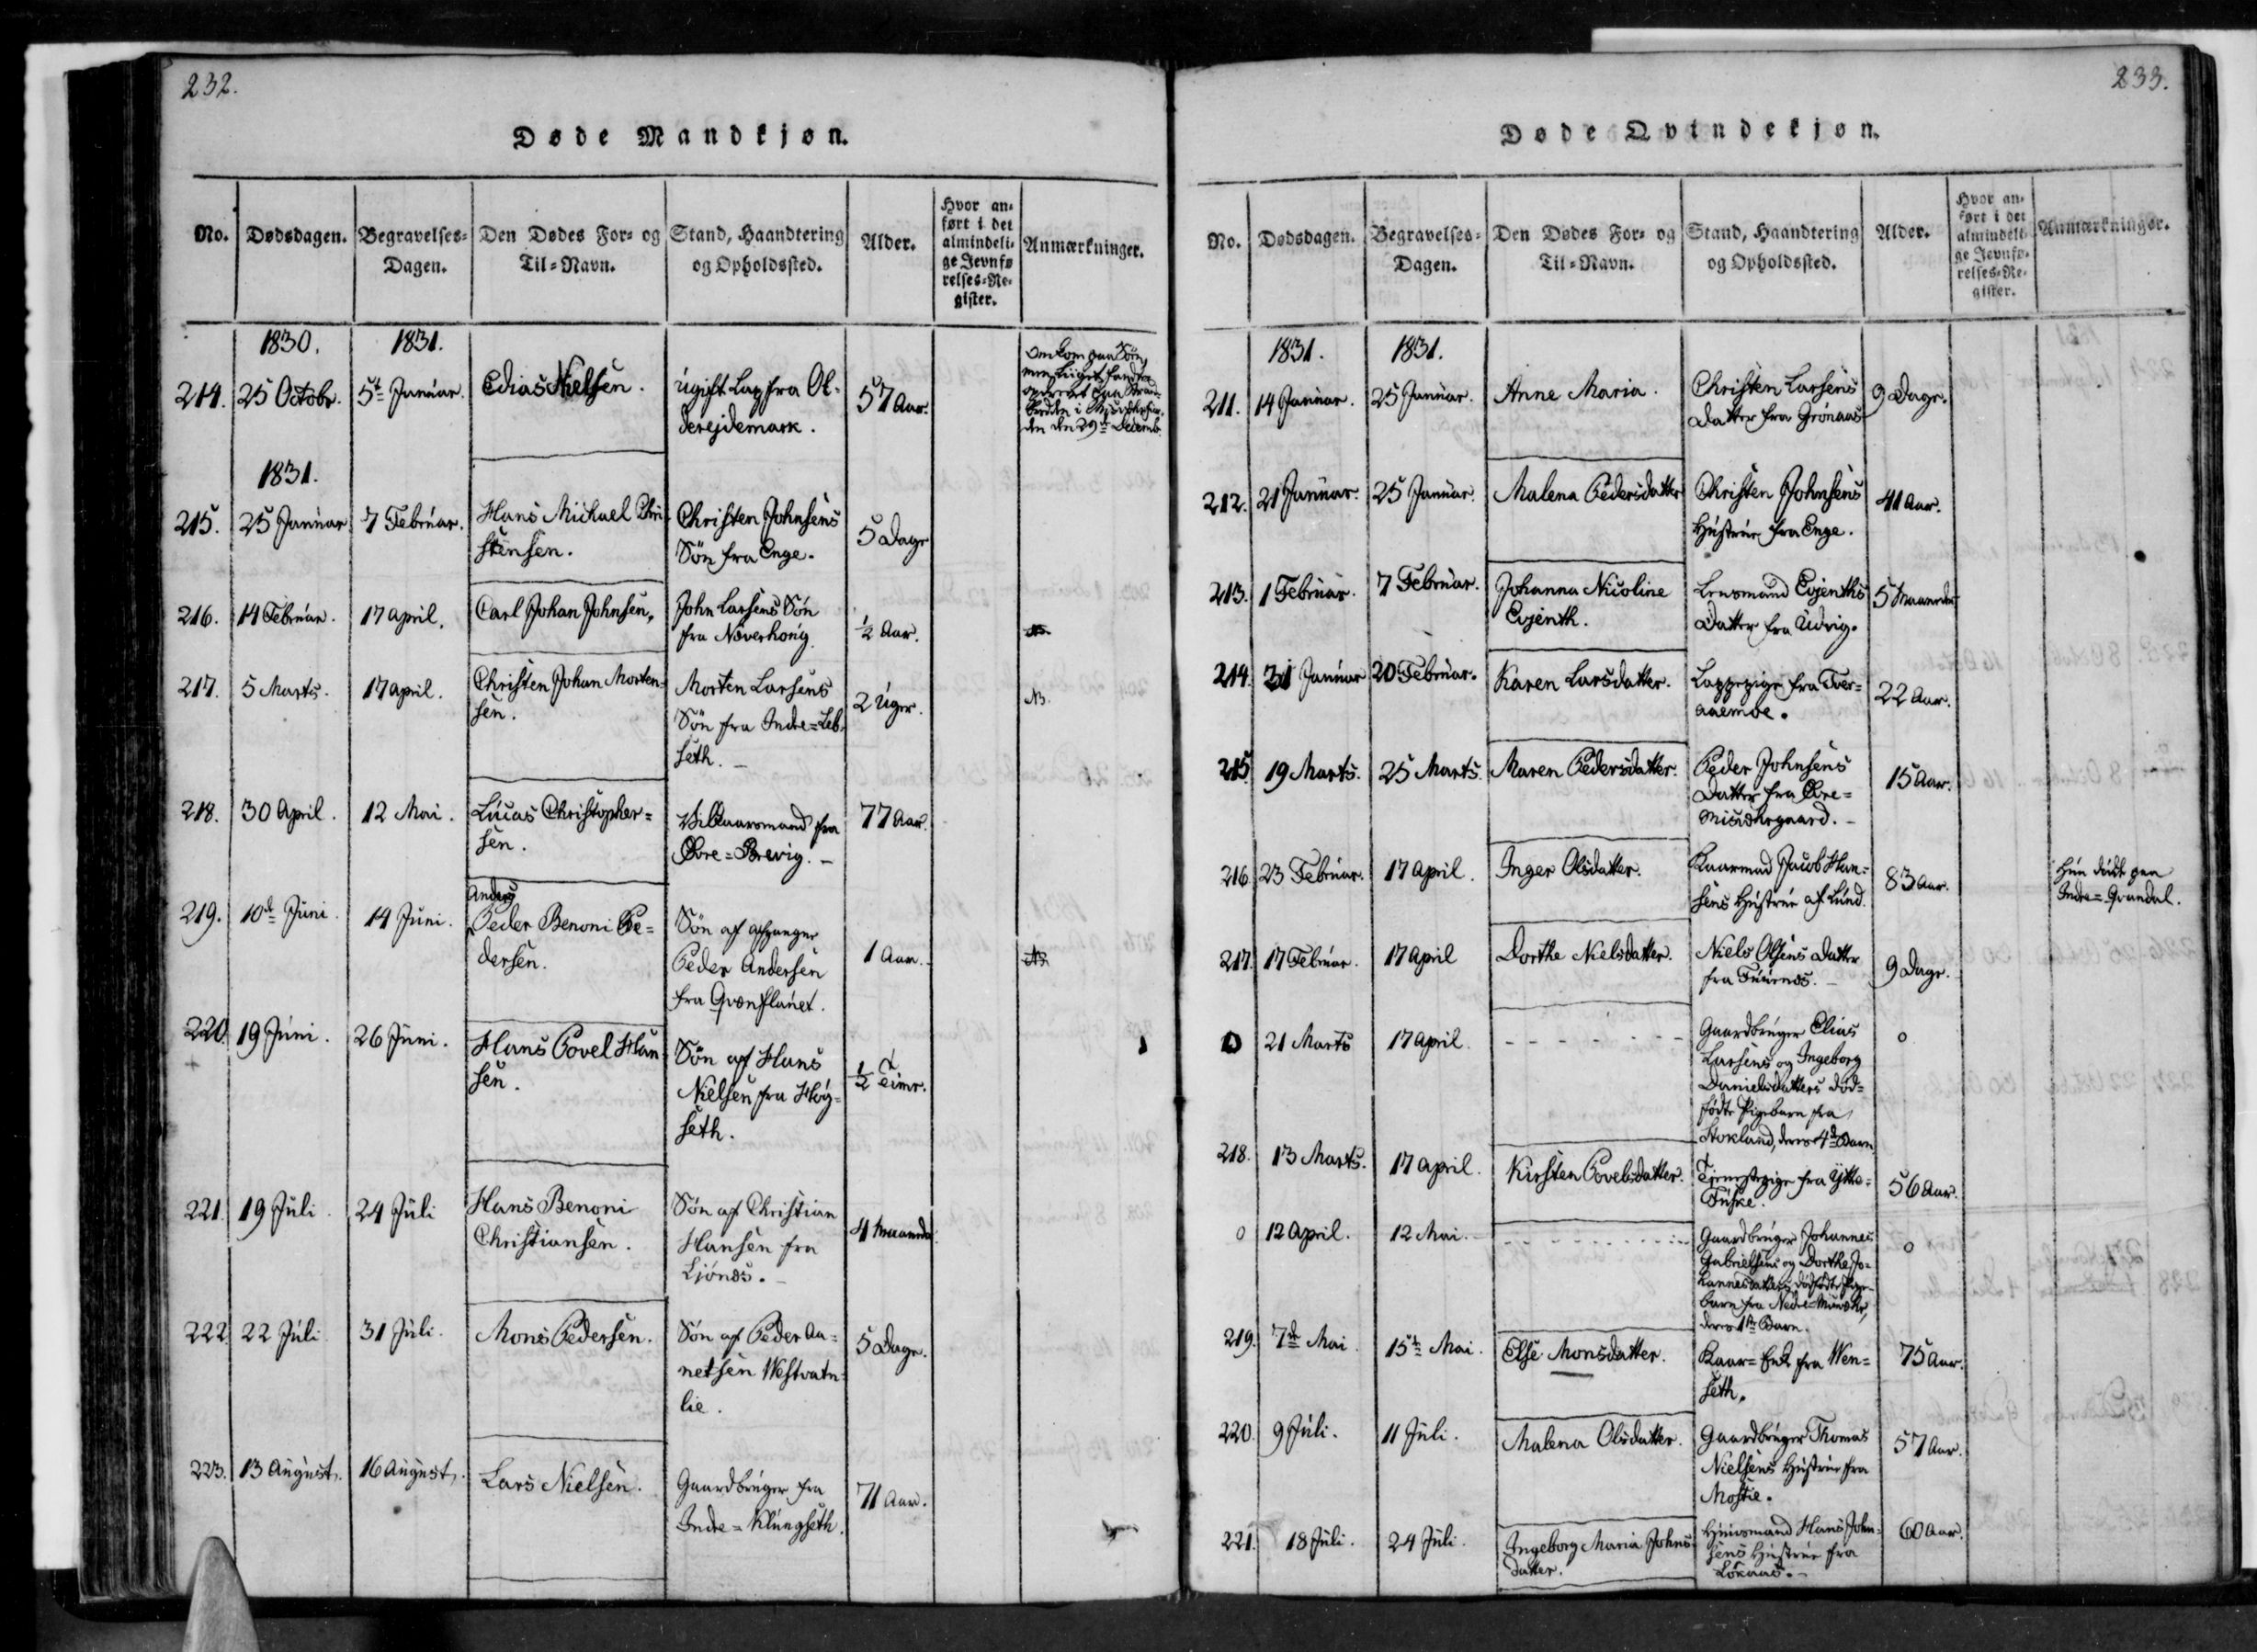 232.
Døde Mandkjøn.
No. Dødsdagen. Begravelses-Dagen. Den Dødes For- og Til-Navn. Stand, Haandtering og Opholdssted. Alder. Hvor anført i det almindelige Jevnførelses-Register. Anmærkninger.
1830. 1831.
214. 25 Octobr. 5te Januar. Edias Nielsen. Ugift Lap fra Ol-
derejdemark. 57 Aar.
Omkom paa Søen,
men Liiget fandtes
opdrevet paa Stran-
bredden i
den den 29de Decemb.
1831.
215. 25 Januar 7 Februar. Hans Michael Chri-
stensen. Christen Johnsens
Søn fra Enge. 5 Dage
216. 14 Februar. 17 April. Carl Johan Johnsen. John Larsens Søn
fra Næverhoug. ½ Aar.
217. 5 Marts. 17 April. Christen Johan Morten-
sen. Morten Larsens
Søn fra Indre-Leb-
seth. 2 Uger. NB.
218. 30 April. 12 Mai. Lucas Christopher-
sen. Vilkaarsmand fra
Øvre-Brevig. 77 Aar.
219. 10de Juni. 14 Juni. Anders
Peder Benoni Pe-
dersen. Søn af
Peder Andersen
fra Qvænflauet. 1 Aar. NB
220. 19 Juni. 26 Juni. Hans Povel Han-
sen. Søn af Hans
Nielsen fra Høg-
seth. ½ Time.
221. 19 Juli. 24 Juli Hans Benoni
Christiansen. Søn af Christian
Hansen fra
Ljönes. 4 Maaneder.
222. 22 Juli 31 Juli. Mons Pedersen. Søn af Peder Aa-
netsen Westvatn-
lie. 5 Dage.
223. 13 August. 16 August. Lars Nielsen. Gaardbruger fra
Indre-Klungseth. 71 Aar.
233.
Døde Qvindekjøn.
No. Dødsdagen. Begravelses-Dagen. Den Dødes For- og Til-Navn. Stand, Haandtering og Opholdssted. Alder. Hvor anført i det almindelige Jevnførelses-Register. Anmærkninger.
1831. 1831.
211. 14 Januar. 25 Januar. Anne Maria. Christen Larsens
Datter fra Grönaas 9 Dage.
212. 21 Januar. 25 Januar. Malena Pedersdatter Christen Johnsens
Hustrue fra Enge. 41 Aar.
213. 1 Februar. 7 Februar. Johanna Nicoline
Evjenth. Lensmand Evjenths
Datter fra Udvig. 5 Maaneder
214. 31 Januar 20 Februar. Karen Larsdatter. Lappepige fra Tver-
aaemoe. 22 Aar.
215 19 Marts. 25 Marts. Maren Pedersdatter. Peder Johnsens
Datter fra Øvre-
Misværgaard. 15 Aar.
216 23 Februar. 17 April. Inger Olsdatter. Kaarmand Jacob Han-
sens Hustrue af Lund. 83 Aar. Hun døde paa
Indre-Qvandal.
217. 17 Februar. 17 April Dorthe Nielsdatter. Niels Olsens Datter
fra Tuurnes. 9 Dage.
0 21 Marts 17 April. - - - - - - - Gaardbruger Elias
Larsens og Ingeborg
Danielsdatters død-
fødte Pigebarn fra
Stokland, deres 4de Barn 0
218. 13 Marts. 17 April. Kirsten Povelsdatter. Tjenestepige fra Ytter-
Fuske. 56 Aar.
0 12 April. 12 Mai. - - - - - - - Gaardbruger Johannes
Gabrielsens og Dorthe Jo-
hannesdatters dødfødte Pige-
barn fra Nedre-Misvær,
deres 1ste Barn. 0
219. 7de Mai. 15de Mai. Else Monsdatter. Kaar-Enke fra Wen-
seth. 75 Aar.
220. 9 Juli. 11 Juli. Malena Olsdatter. Gaardbruger Thomas
Nielsens Hustrue fra
Mostie. 57 Aar.
221. 18 Juli. 24 Juli. Ingeborg Maria Johns-
datter. Huusmand Hans John-
sens Hustrue fra
Løkaas. 60 Aar.